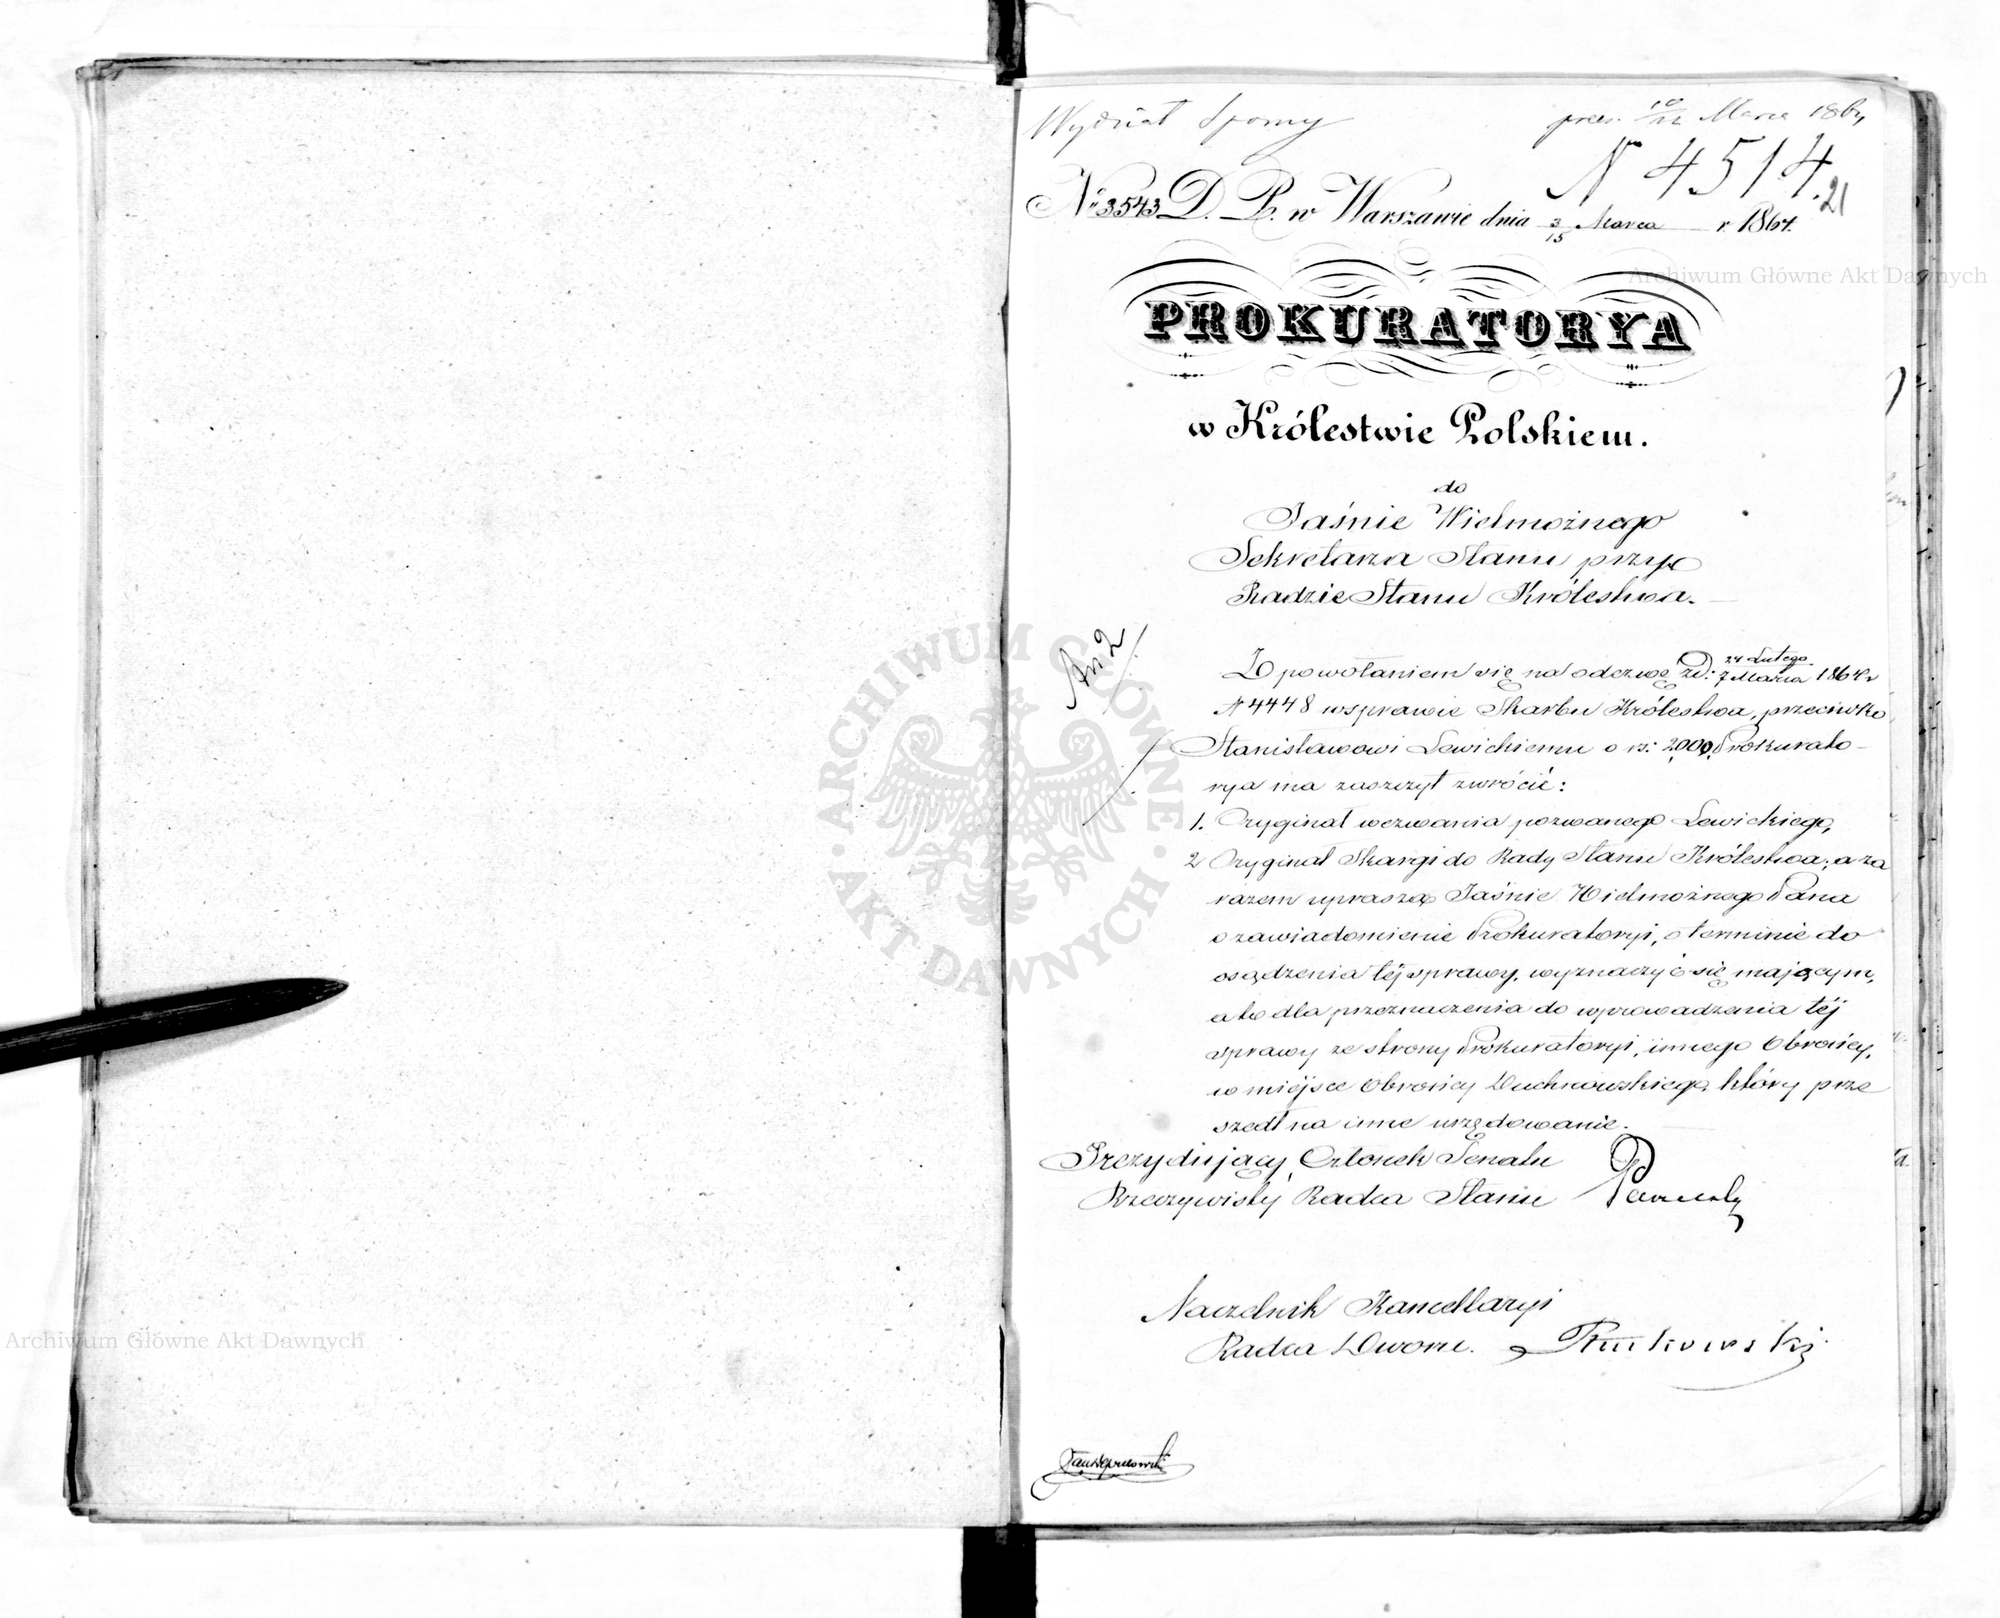 Wydział Sporny
prez. 10/22 Marca 1864
N 4514.
21
№ 3543 D. P. w Warszawie dnia 3/15 Marca r. 1864.
PROKURATORYA
w Królestwie Polskiem.
do
Jaśnie Wielmożnego
Sekretarza Stanu przy
Radzie Stanu Królestwa.
Z powołaniem się na odezwę z d: 24 Lutego/7 Marca 1864 r
N 4448 w sprawie Skarbu Królestwa, przeciwko
Stanisławowi Lewickiemu o rs: 2000, Prokurato-
rya ma zaszczyt zwrócić:
1. Oryginał wezwania pozwanego Lewickiego,
2 Oryginał Skargi do Rady Stanu Królestwa; a za
razem uprasza Jaśnie Wielmożnego Pana
o zawiadomienie Prokuratoryi, o terminie do
osądzenia téj sprawy, wyznaczyć się mającym,
a to dla przeznaczenia do wprowadzenia téj
sprawy ze strony Prokuratoryi, innego Obrońcy,
w miéjsce Obrońcy Duchnowskiego, który prze
szedł na inne urzędowanie.
Prezydujący, Członek Senatu
Rzeczywisty Radca Stanu
Naczelnik Kancellaryi
Radca Dworu.
Archiwum Główne Akt Dawnych
Archiwum Główne Akt Dawnych
ARCHIWUM GŁÓWNE AKT DAWNYCH